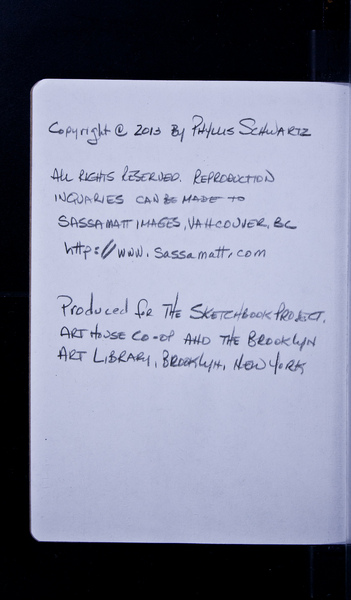 Copyright @ 2013 By PHYLLIS SCHWARTZ
ALL RIGHTS RESERVED. REPRODUCTION
INQUARIES CAN BE MADE TO
SASSAMATT IMAGES, VANCOUVER, BC
http://www.sassamatt.com
Produced for THE SKETCHBOOK PROJECT,
ART HOUSE CO-OP AND THE BROOKLYN
ART LIBRARY, BROOKLYN, NEW YORK